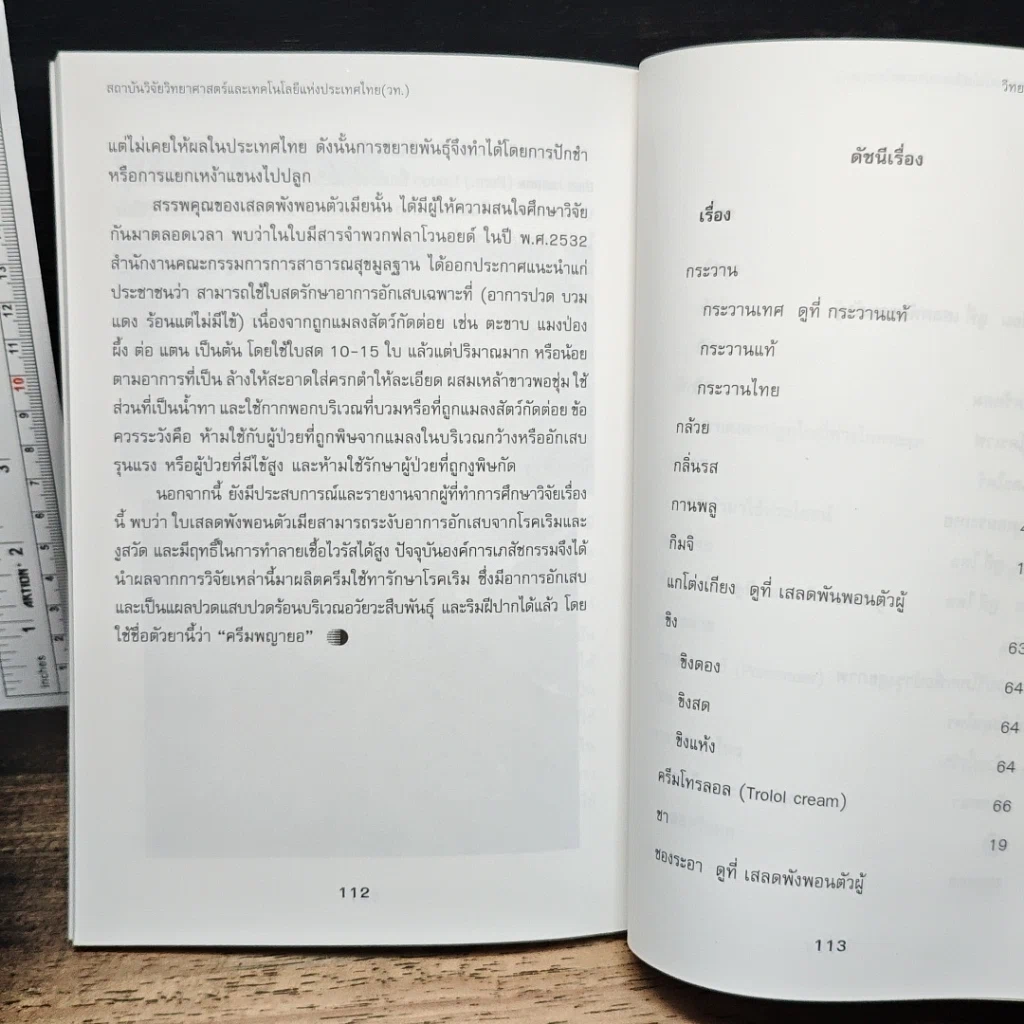 สถาบันวิจัยวิทยาศาสตร์และเทคโนโลยีแห่งประเทศไทย(วท.)
แต่ไม่เคยให้ผลในประเทศไทย ดังนั้นการขยายพันธุ์จึงทำได้โดยการปักชำ
หรือการแยกเหง้าแขนงไปปลูก
สรรพคุณของเสลดพังพอนตัวเมียนั้น ได้มีผู้ให้ความสนใจศึกษาวิจัย
กันมาตลอดเวลา พบว่าในใบมีสารจำพวกฟลาโวนอยด์ ในปี พ.ศ.2532
สำนักงานคณะกรรมการการสาธารณสุขมูลฐาน ได้ออกประกาศแนะนำแก่
ประชาชนว่า สามารถใช้ใบสดรักษาอาการอักเสบเฉพาะที่ (อาการปวด บวม
แดง ร้อนแต่ไม่มีไข้) เนื่องจากถูกแมลงสัตว์กัดต่อย เช่น ตะขาบ แมงป่อง
ผึ้ง ต่อ แตน เป็นต้น โดยใช้ใบสด 10-15 ใบ แล้วแต่ปริมาณมาก หรือน้อย
ตามอาการที่เป็น ล้างให้สะอาดใส่ครกตำให้ละเอียด ผสมเหล้าขาวพอชุ่ม ใช้
ส่วนที่เป็นน้ำทา และใช้กากพอกบริเวณที่บวมหรือที่ถูกแมลงสัตว์กัดต่อย ข้อ
ควรระวังคือ ห้ามใช้กับผู้ป่วยที่ถูกพิษจากแมลงในบริเวณกว้างหรืออักเสบ
รุนแรง หรือผู้ป่วยที่มีไข้สูง และห้ามใช้รักษาผู้ป่วยที่ถูกงูพิษกัด
นอกจากนี้ ยังมีประสบการณ์และรายงานจากผู้ที่ทำการศึกษาวิจัยเรื่อง
นี้ พบว่า ใบเสลดพังพอนตัวเมียสามารถระงับอาการอักเสบจากโรคเริมและ
งูสวัด และมีฤทธิ์ในการทำลายเชื้อไวรัสได้สูง ปัจจุบันองค์การเภสัชกรรมจึงได้
นำผลจากการวิจัยเหล่านี้มาผลิตครีมใช้ทารักษาโรคเริม ซึ่งมีอาการอักเสบ
และเป็นแผลปวดแสบปวดร้อนบริเวณอวัยวะสืบพันธุ์ และริมฝีปากได้แล้ว โดย
ใช้ชื่อตัวยานี้ว่า “ครีมพญายอ”
112
วิทย
ดัชนีเรื่อง
เรื่อง
กระวาน
กระวานเทศ ดูที่ กระวานแท้
กระวานแท้
กระวานไทย
กล้วย
กลิ่นรส
กานพลู
กิมจิ
แกโต่งเกียง ดูที่ เสลดพันพอนตัวผู้
ขิง
63
ขิงดอง
64
ขิงสด
64
ขิงแห้ง
64
ครีมโทรลอล (Trolol cream)
66
ชา
19
ชองระอา ดูที่ เสลดพังพอนตัวผู้
113
inches
AKTION
1
2
3
1
2
3
4
5
6
7
8
9
10
11
12
13